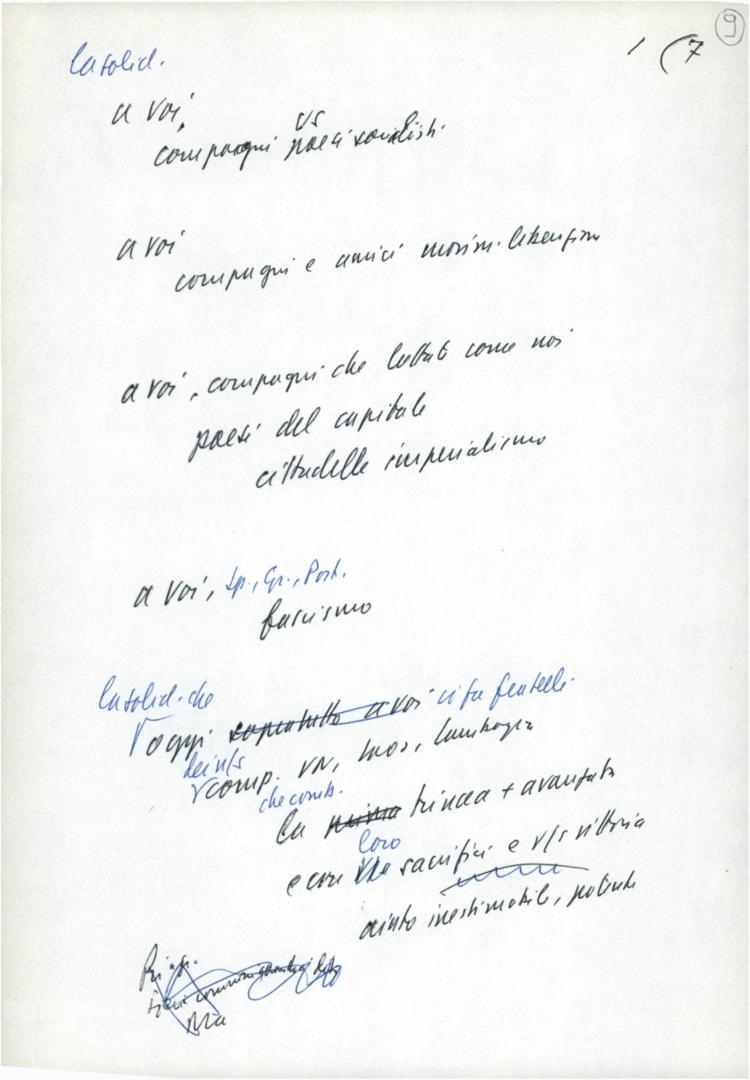 9
1 (7
la solid.
a voi,
compagni vs paesi socialisti
a voi
compagni e amici movim. liberazion
a voi, compagni che lottate come noi
paesi del capitale
cittadelle imperialismo
a voi, Sp., Gr., Port.
fascismo
la solid. che
oggi soprattutto a voi ci fa fratelli
dei n/s
comp. VN, Laos, Cambogia
che comb.
la prima trincea + avanzata
loro
e con sacrifici e v/s vittoria
aiuto inestimabile, potente